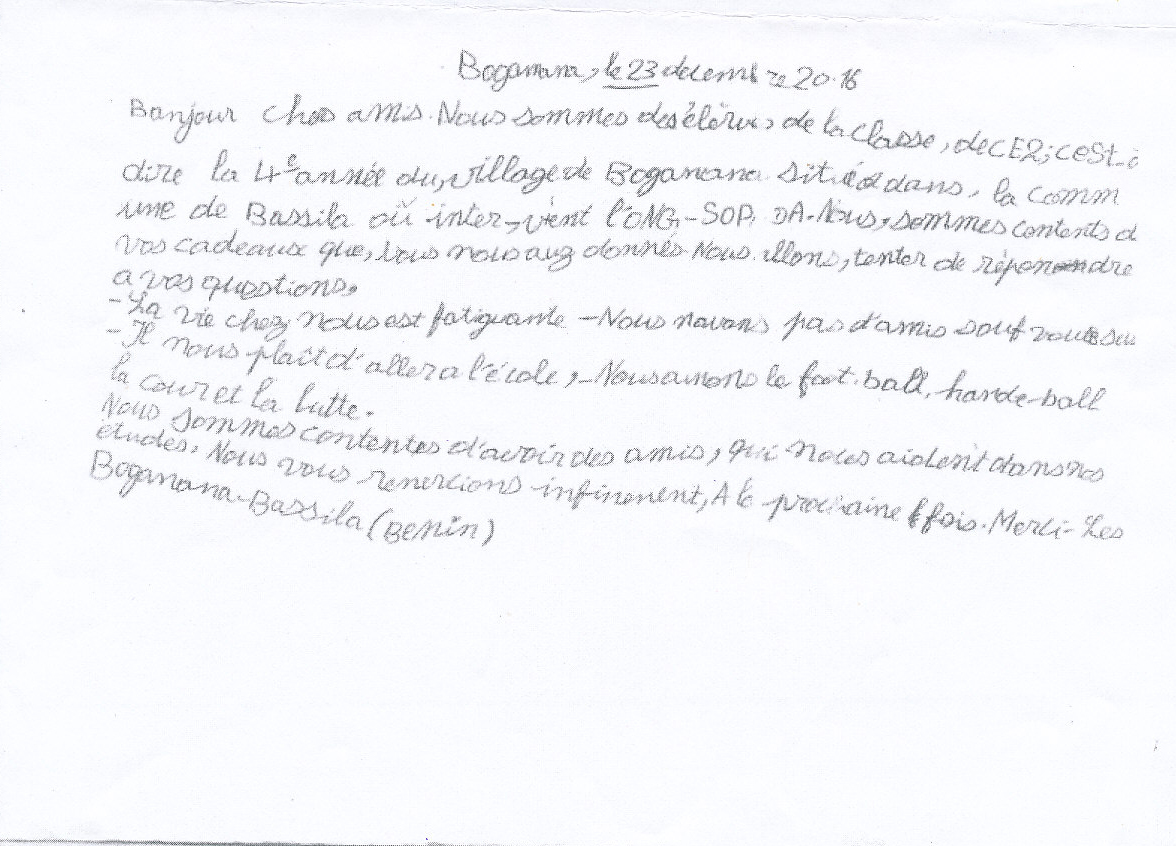 Boganana, le 23 décembre 2016
Bonjour chers amis. Nous sommes des élèves, de la classe, de CE2; c'est-à
dire la 4e année du, village de Boganana situé dans, la comm
une de Bassila où inter-vient l'ONG-SOP. Nous, sommes contents d
vos cadeaux que, vous nous avez donnés. Nous allons, tenter de répondre
a vos questions.
-La vie chez nous est fatiguante -Nous navons pas d'amis sauf vous
-Il nous plaît d'aller a l'école, -Nous aimons le foot-ball, hande-ball
la cour et la lutte.
Nous sommes contentes d'avoir des amis, qui nous aident dans nos
études, Nous vous remercions infiniment, A la prochaine fois. Merci- Les
Boganana-Bassila (BENIN)